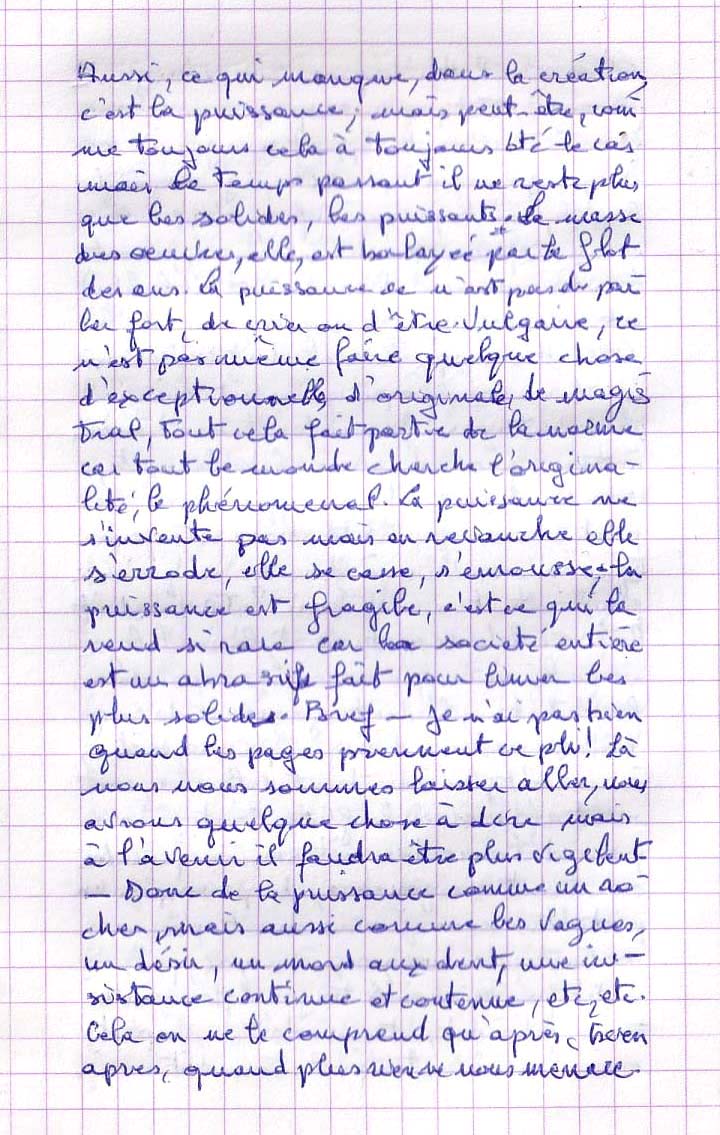 Aussi, ce qui manque, dans la création,
c'est la puissance, mais peut-être, com
me toujours cela à toujours été le cas
mais le temps passant il ne reste plus
que les solides, les puissants. La masse
des oeuvres, elle, est balayée par le flot
des ans. La puissance ce n'est pas de par
ler fort, de crier ou d'être vulgaire, ce
n'est pas même faire quelque chose
d'exceptionnelle, d'originale, de magis
tral, tout cela fait partie de la norme
car tout le monde cherche l'origina-
lité, le phénomenal. La puissance ne
s'invente pas mais en revanche elle
s'errode, elle se casse, s'émousse, la
puissance est fragile, c'est ce qui la
rend si rare car la société entière
est un abrasif fait pour limer les
plus solides. Bref — je n'ai pas bien
quand les pages prennent ce pli! Là
nous nous sommes laisser aller, nous
avons quelque chose à dire mais
à l'avenir il faudra être plus vigelent
— Donc de la puissance comme un ro
cher, mais aussi comme les vagues,
un désir, un mord aux dent, une in-
sistance continue et contenue, etc, etc.
Cela on ne le comprend qu'après, bien
apres, quand plus rien ne nous menace.